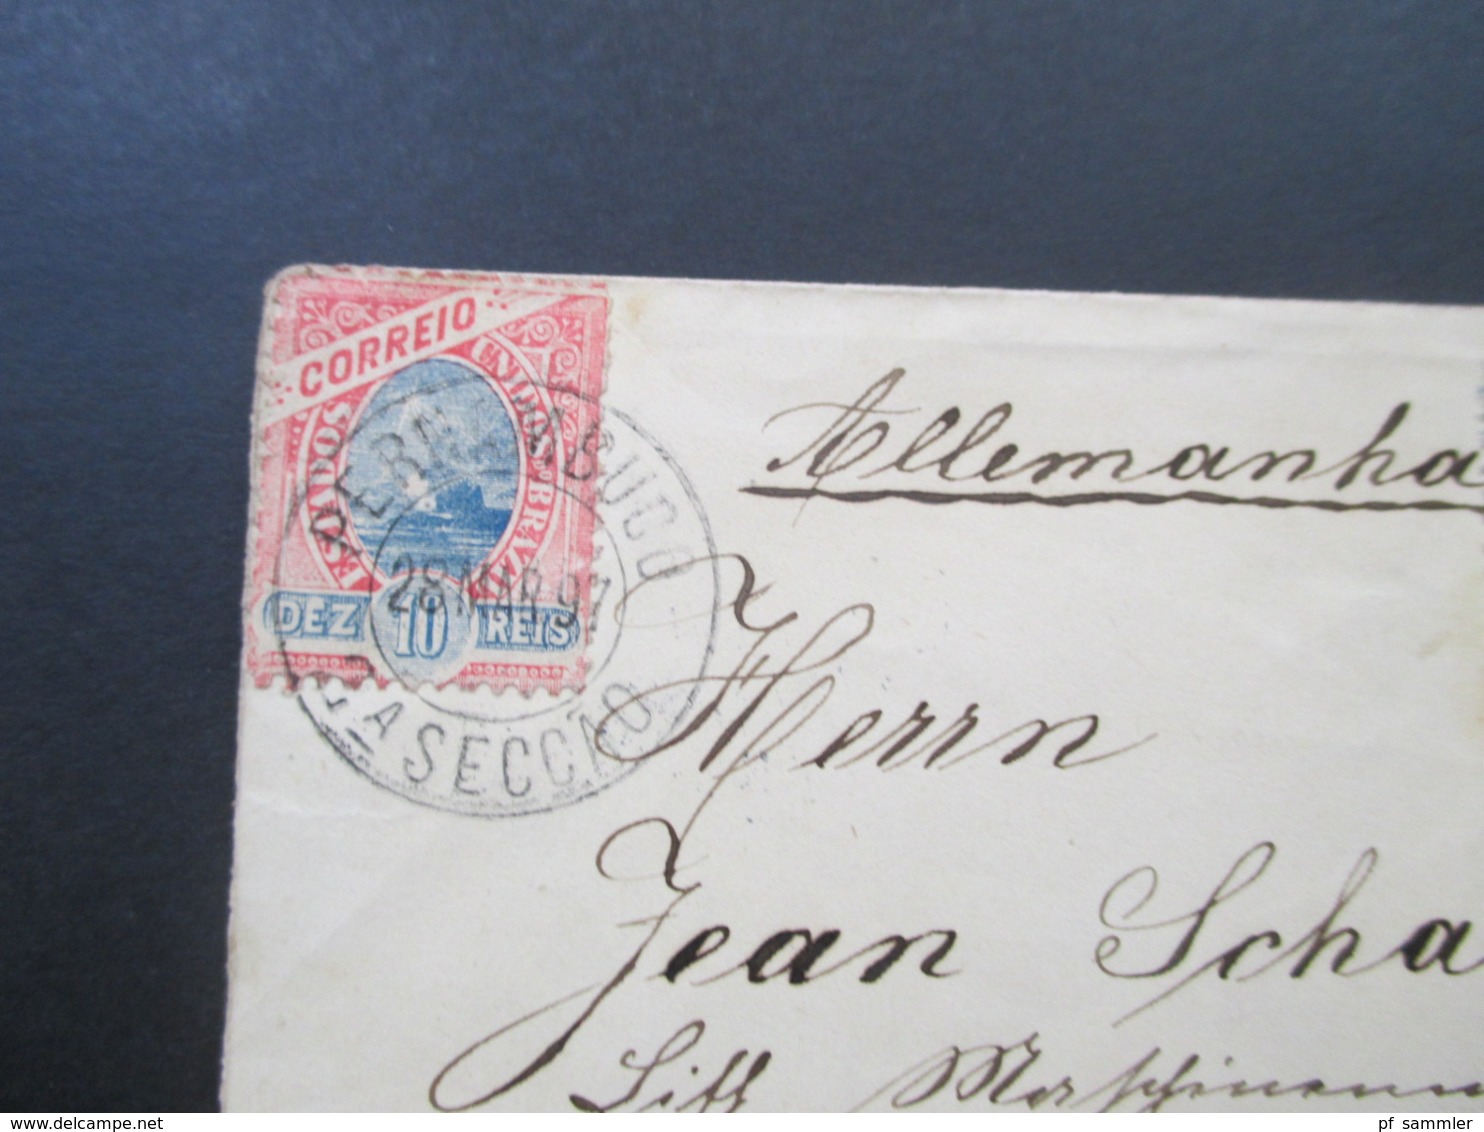 CORREIO
ESTADOS UNIDOS DO BRAZIL
DEZ 10 REIS
PERNAMBUCO
28 MAR 97
2A SECCÃO
Allemanha
Herrn
Jean Scha
delcampe.net
pf_sammler